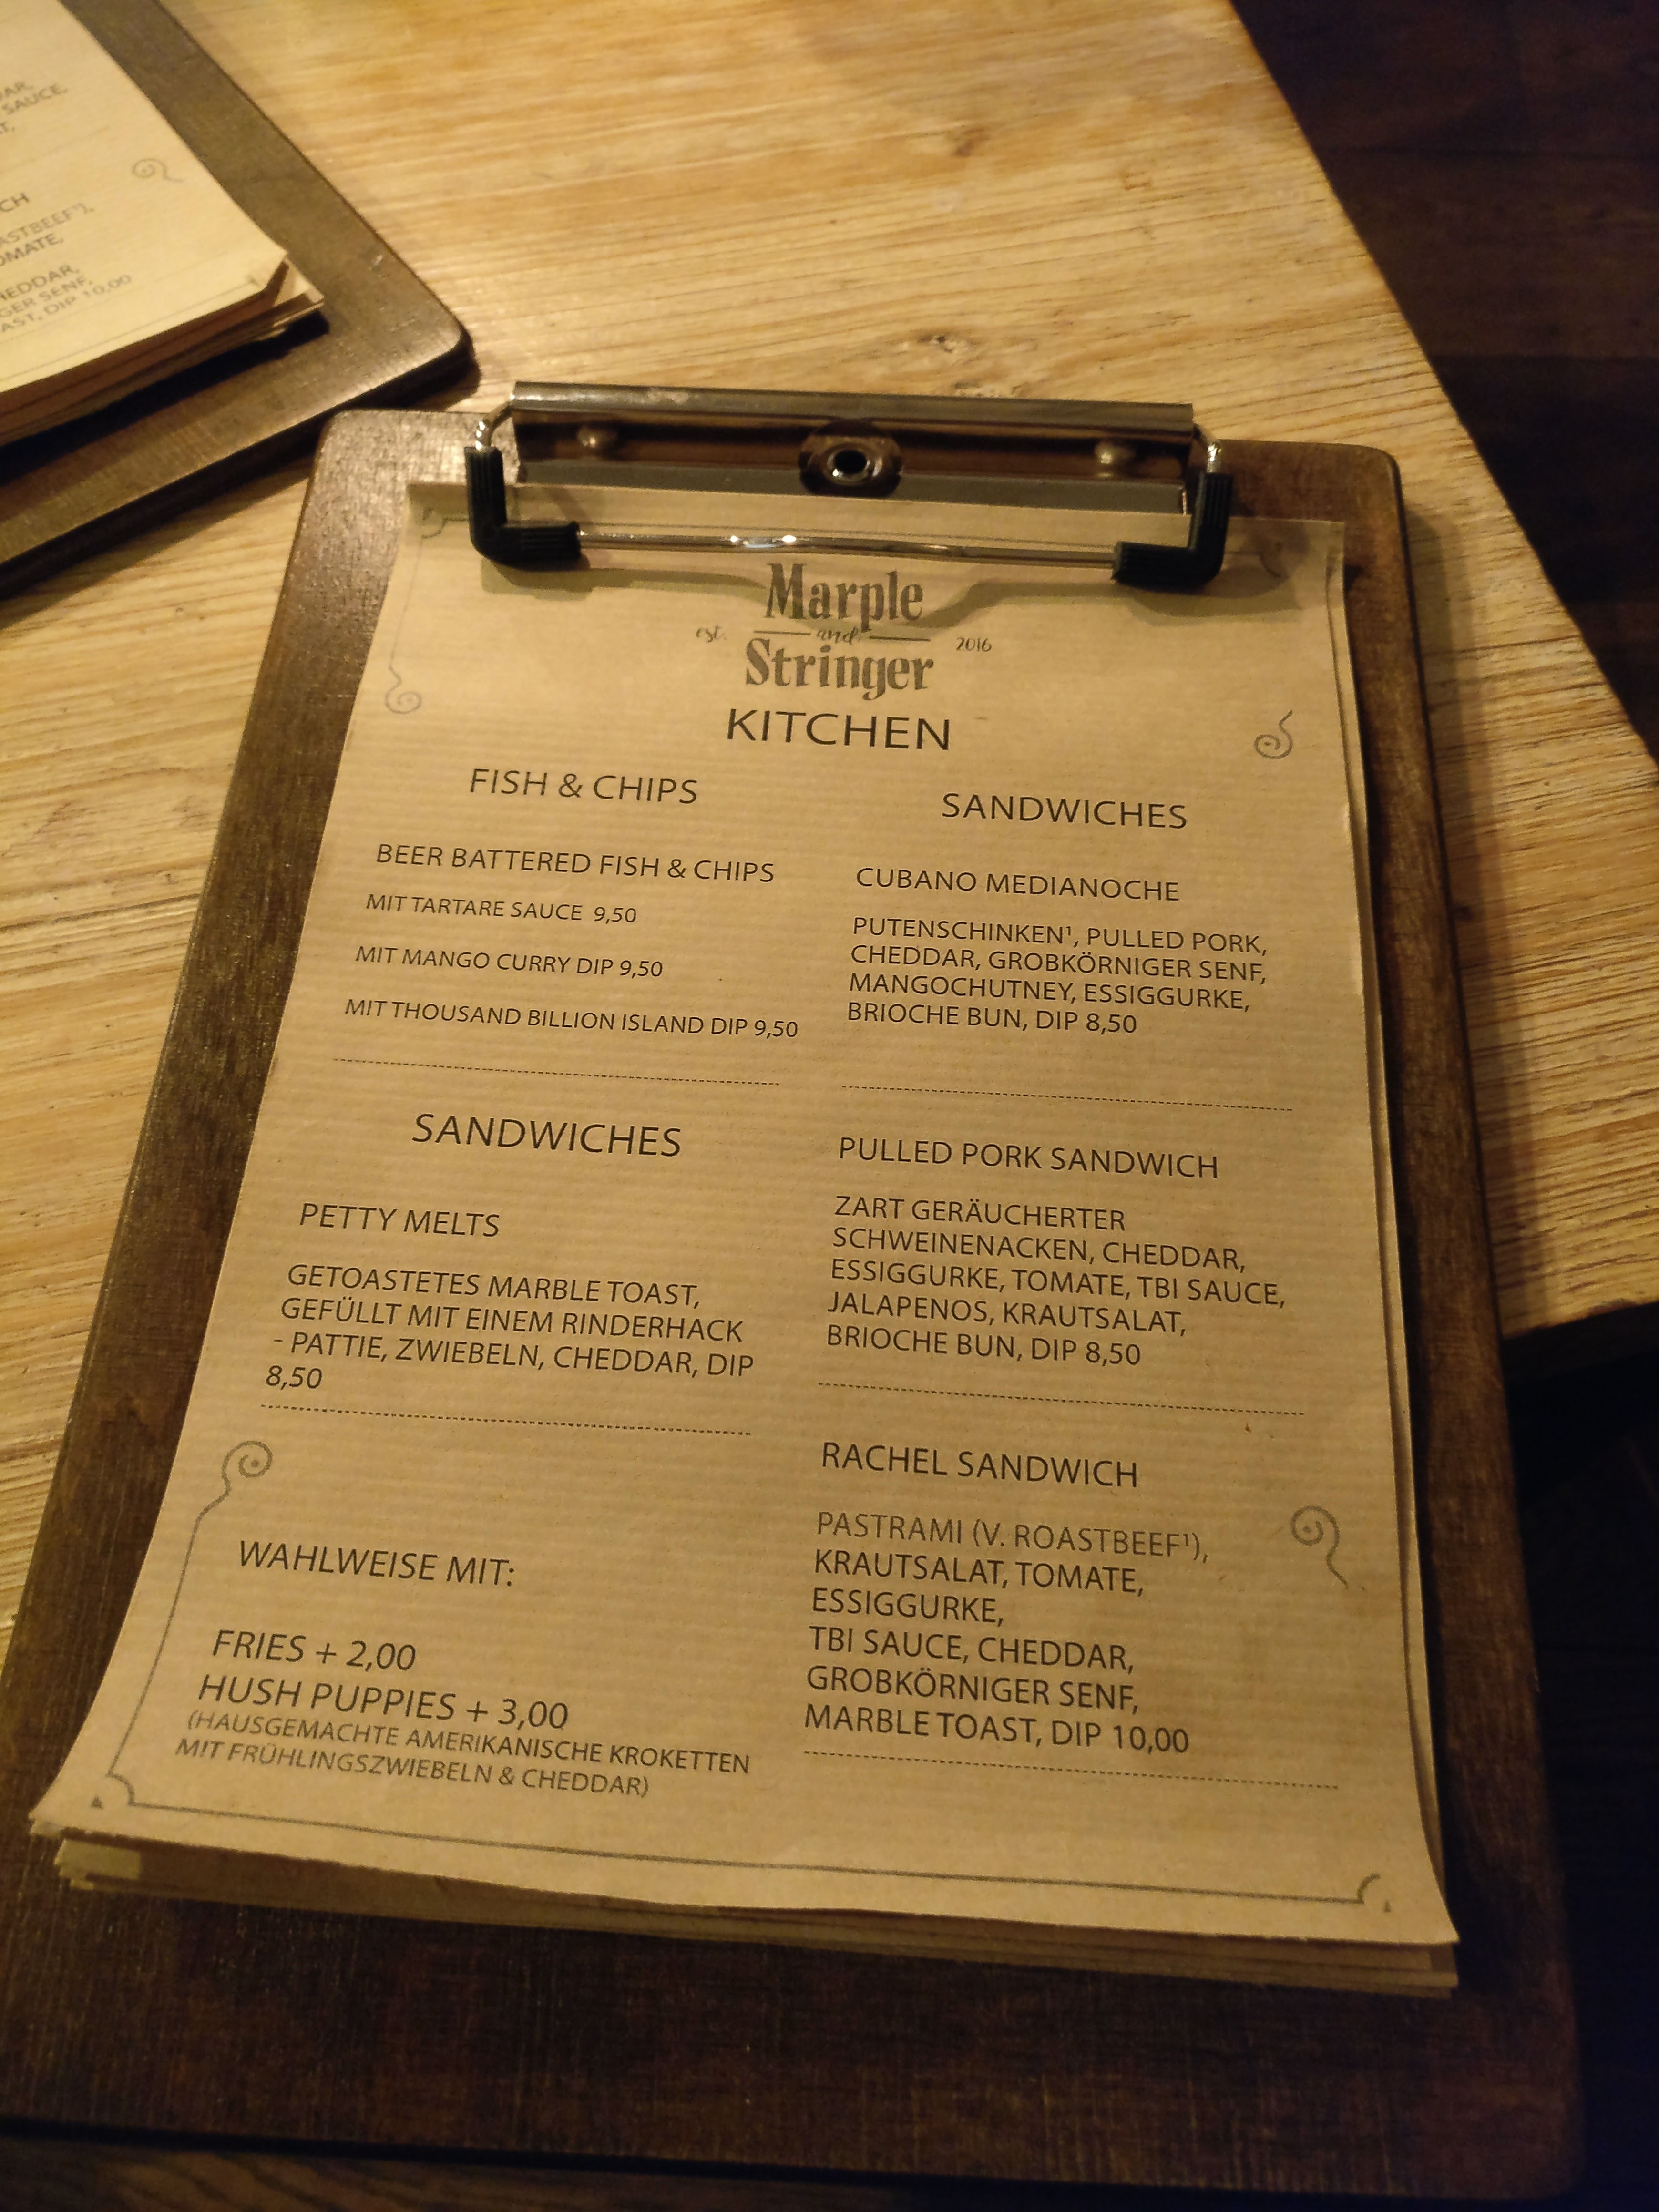 DAR,
SAUCE,
T,
CH
ASTBEEF¹),
OMATE,
HEDDAR,
GER SENF,
AST, DIP 10,00
Marple
est. and 2016
Stringer
KITCHEN
FISH & CHIPS
BEER BATTERED FISH & CHIPS
MIT TARTARE SAUCE 9,50
MIT MANGO CURRY DIP 9,50
MIT THOUSAND BILLION ISLAND DIP 9,50
SANDWICHES
PETTY MELTS
GETOASTETES MARBLE TOAST,
GEFÜLLT MIT EINEM RINDERHACK
- PATTIE, ZWIEBELN, CHEDDAR, DIP
8,50
WAHLWEISE MIT:
FRIES + 2,00
HUSH PUPPIES + 3,00
(HAUSGEMACHTE AMERIKANISCHE KROKETTEN
MIT FRÜHLINGSZWIEBELN & CHEDDAR)
SANDWICHES
CUBANO MEDIANOCHE
PUTENSCHINKEN¹, PULLED PORK,
CHEDDAR, GROBKÖRNIGER SENF,
MANGOCHUTNEY, ESSIGGURKE,
BRIOCHE BUN, DIP 8,50
PULLED PORK SANDWICH
ZART GERÄUCHERTER
SCHWEINENACKEN, CHEDDAR,
ESSIGGURKE, TOMATE, TBI SAUCE,
JALAPENOS, KRAUTSALAT,
BRIOCHE BUN, DIP 8,50
RACHEL SANDWICH
PASTRAMI (V. ROASTBEEF¹),
KRAUTSALAT, TOMATE,
ESSIGGURKE,
TBI SAUCE, CHEDDAR,
GROBKÖRNIGER SENF,
MARBLE TOAST, DIP 10,00